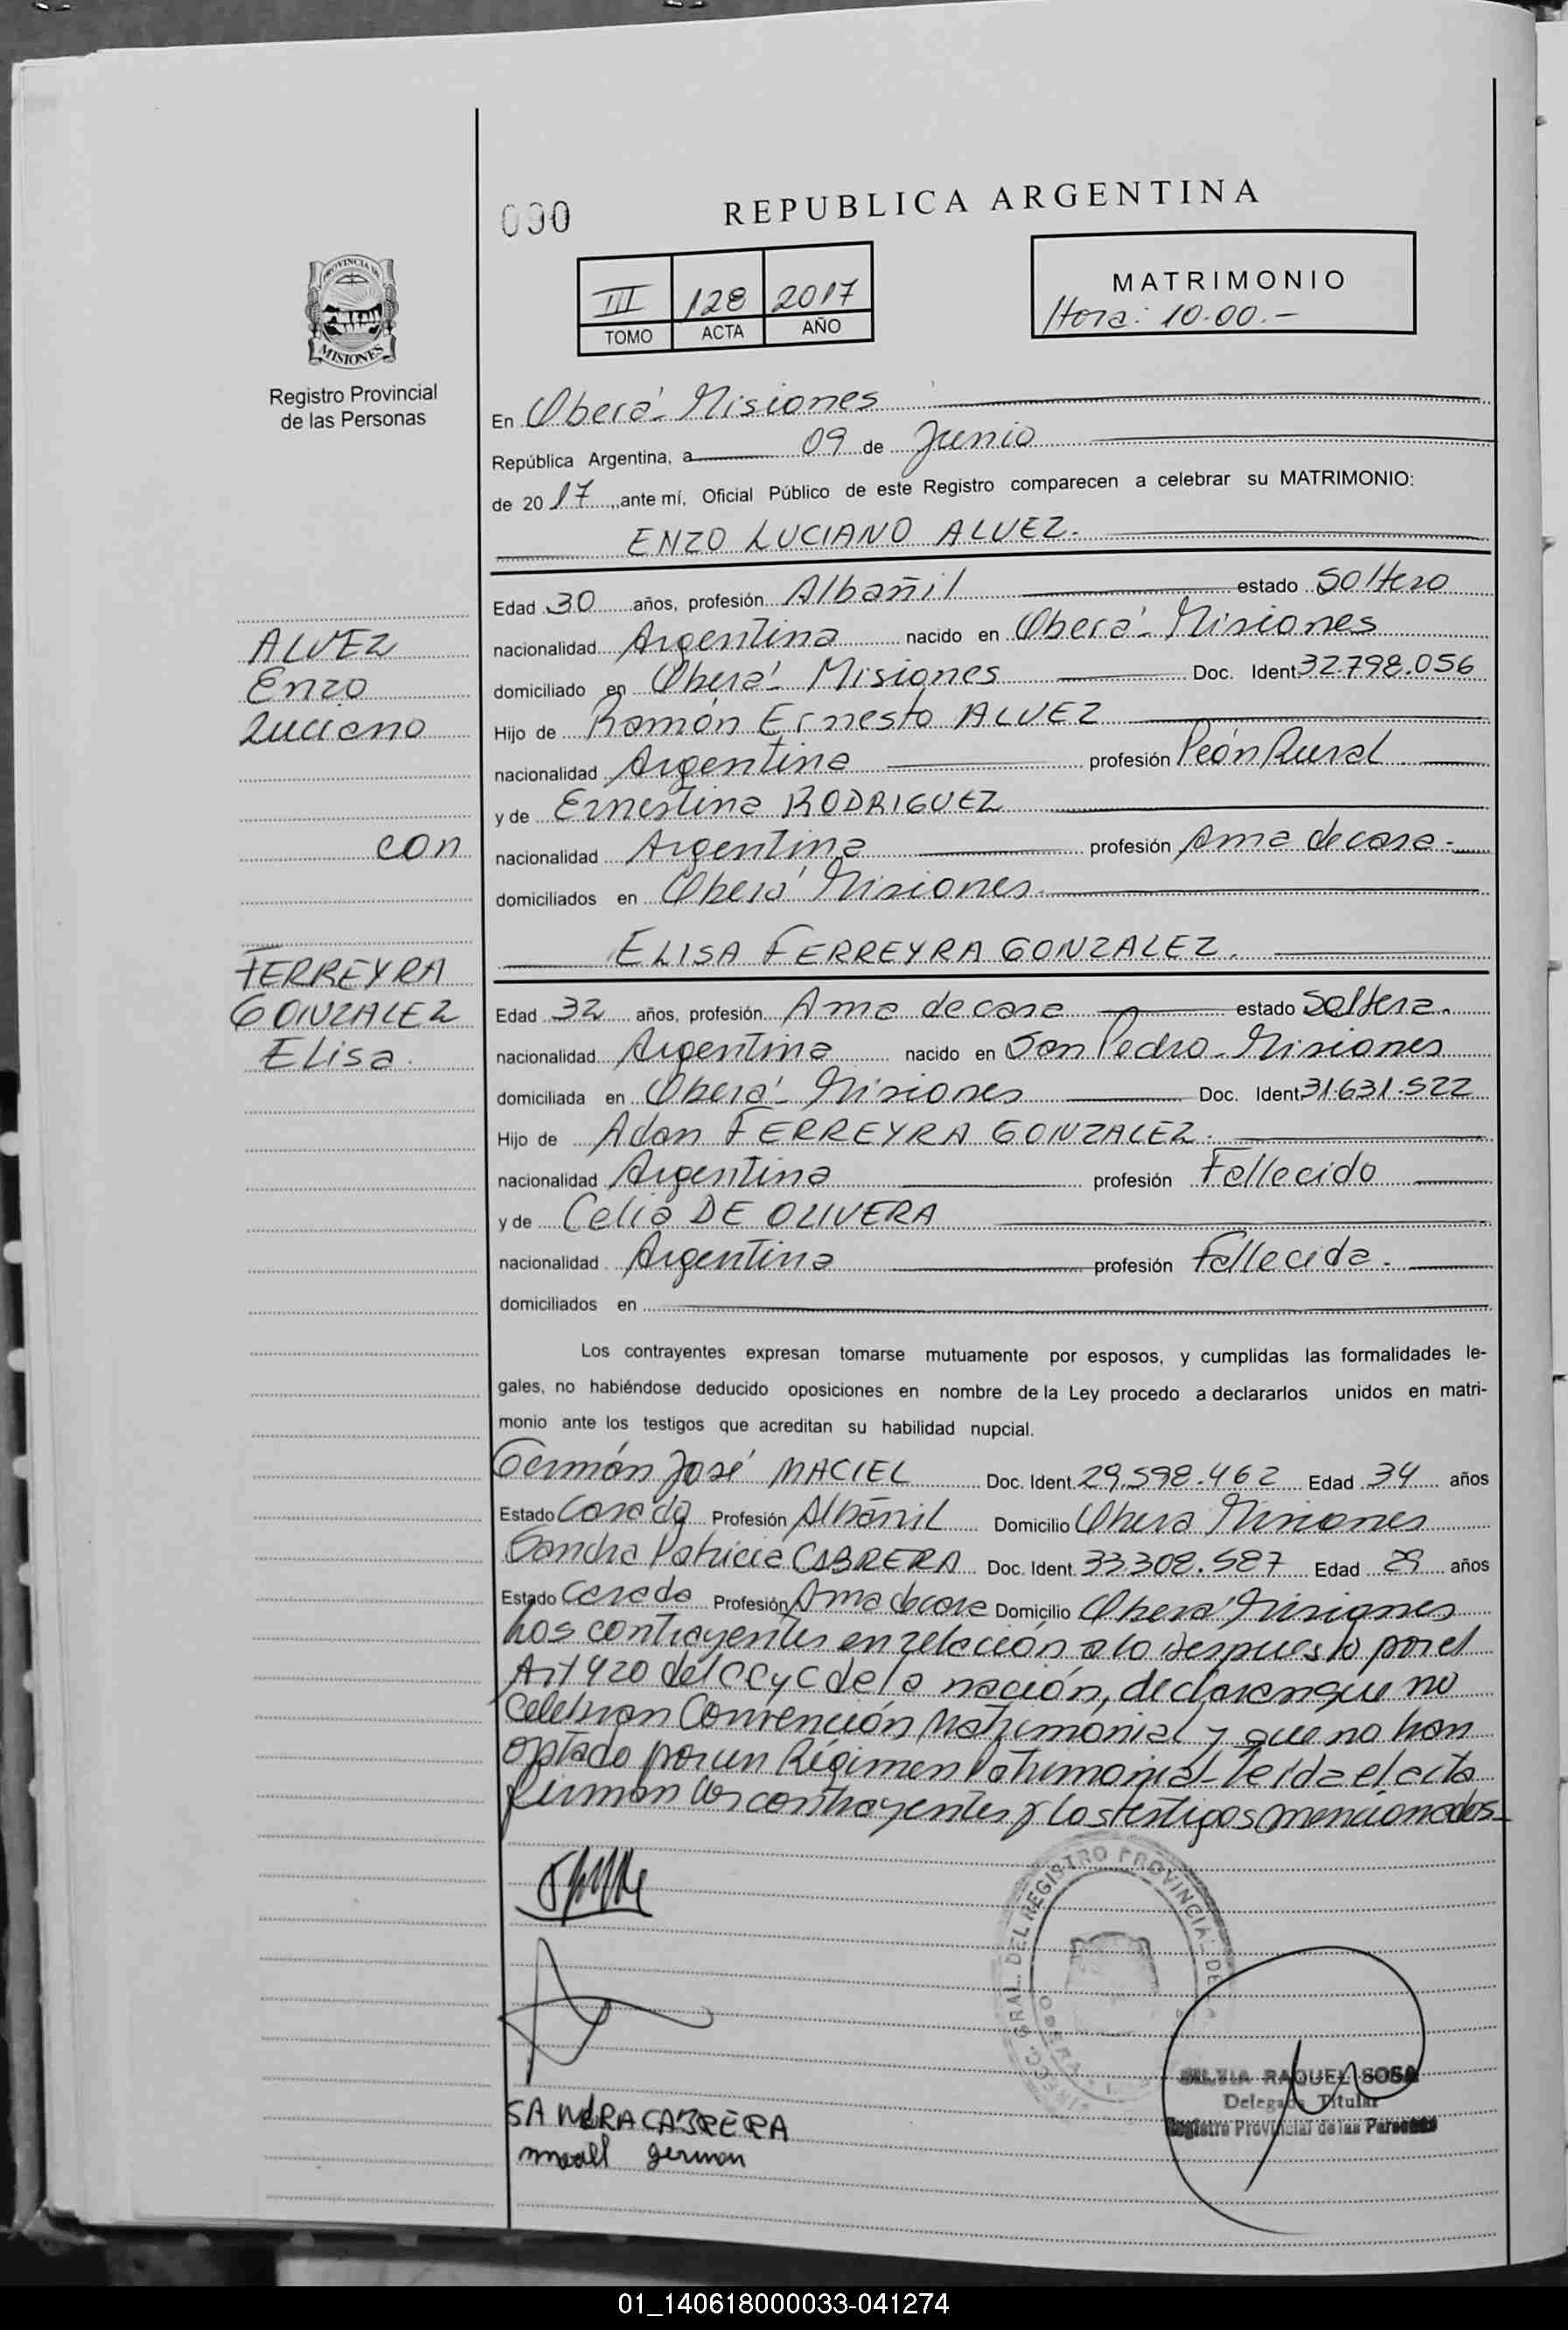 090
REPUBLICA ARGENTINA
III 128 2017
TOMO ACTA AÑO
MATRIMONIO
Hora: 10.00.-
PROVINCIA DE
MISIONES
Registro Provincial
de las Personas
En Oberá- Misiones
República Argentina, a 09 de Junio
de 2017, ante mí, Oficial Público de este Registro comparecen a celebrar su MATRIMONIO:
ENZO LUCIANO ALVEZ.
Edad 30 años, profesión Albañil estado Soltero
nacionalidad Argentina nacido en Oberá- Misiones
domiciliado en Oberá- Misiones Doc. Ident 32.798.056
Hijo de Ramón Ernesto ALVEZ
nacionalidad Argentina profesión Peón Rural
y de Ernestina RODRIGUEZ
nacionalidad Argentina profesión Ama de casa.-
domiciliados en Oberá Misiones.
ALVEZ
Enzo
Luciano
con
FERREYRA
GONZALEZ
Elisa.
ELISA FERREYRA GONZALEZ.
Edad 32 años, profesión Ama de casa estado Soltera.
nacionalidad Argentina nacido en San Pedro- Misiones
domiciliada en Oberá- Misiones Doc. Ident 31.631.522
Hijo de Adan FERREYRA GONZALEZ.
nacionalidad Argentina profesión Fallecido
y de Celia DE OLIVERA
nacionalidad Argentina profesión Fallecida.
domiciliados en
Los contrayentes expresan tomarse mutuamente por esposos, y cumplidas las formalidades le-
gales, no habiéndose deducido oposiciones en nombre de la Ley procedo a declararlos unidos en matri-
monio ante los testigos que acreditan su habilidad nupcial.
Germán José MACIEL Doc. Ident. 29.598.462 Edad 34 años
Estado Casado Profesión Albañil Domicilio Oberá Misiones
Sandra Patricia CABRERA Doc. Ident. 33.308.587 Edad 29 años
Estado Casada Profesión Ama de casa Domicilio Oberá Misiones
Los contrayentes en relación a lo despuesto por el
Art 420 del CCyC de la nación, declaran que no
celebran Convención Matrimonial y que no han
optado por un Régimen Patrimonial- Leída el acta
firman los contrayentes y los testigos mencionados-
SANDRA CABRERA
german
DEL REGISTRO PROVINCIAL DE
SILVIA RAQUEL SOSA
Delegada Titular
Registro Provincial de las Personas
01_140618000033-041274